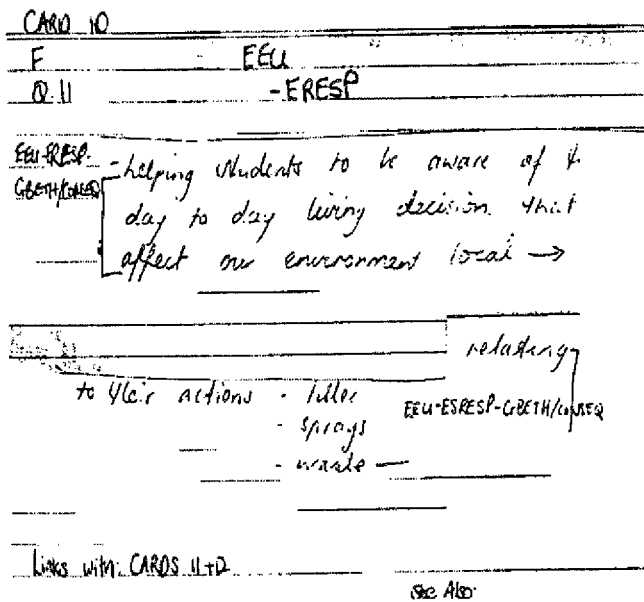 CARD 10
F EEU
Q.11 -ERESP
EEU-ERESP-
GBETH/CONSEQ
- helping students to be aware of &
day to day living decision that
affect our environment local →
relating
to their actions - litter
- sprays
- waste —
EEU-ESRESP-GBETH/CONSEQ
Links with: CARDS 11+12
See Also: